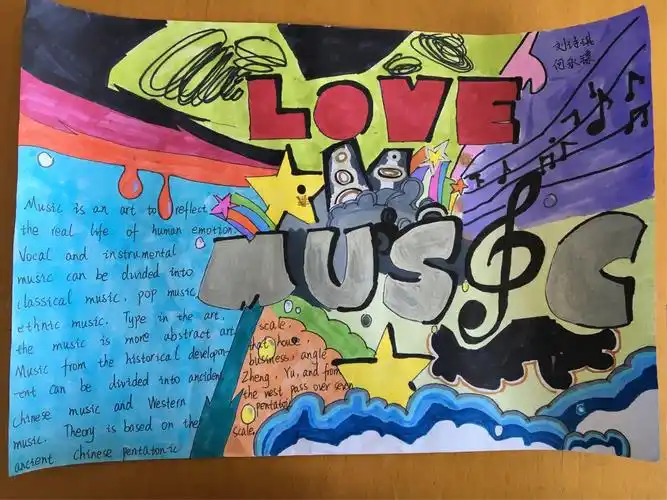 LOVE
MUSIC
刘诗琪
Music is an art to reflect
the real life of human emotion.
Vocal and instrumental
music can be divided into
classical music, pop music,
ethnic music. Type in the art,
the music is more abstract art
Music from the historical developm-
-ent can be divided into ancident
chinese music and Western
music. Theory is based on the
ancient chinese pentatonic
scale,
that house
business, angle
Zheng, Yu, and from
the west pass over seven
pentato
scale,